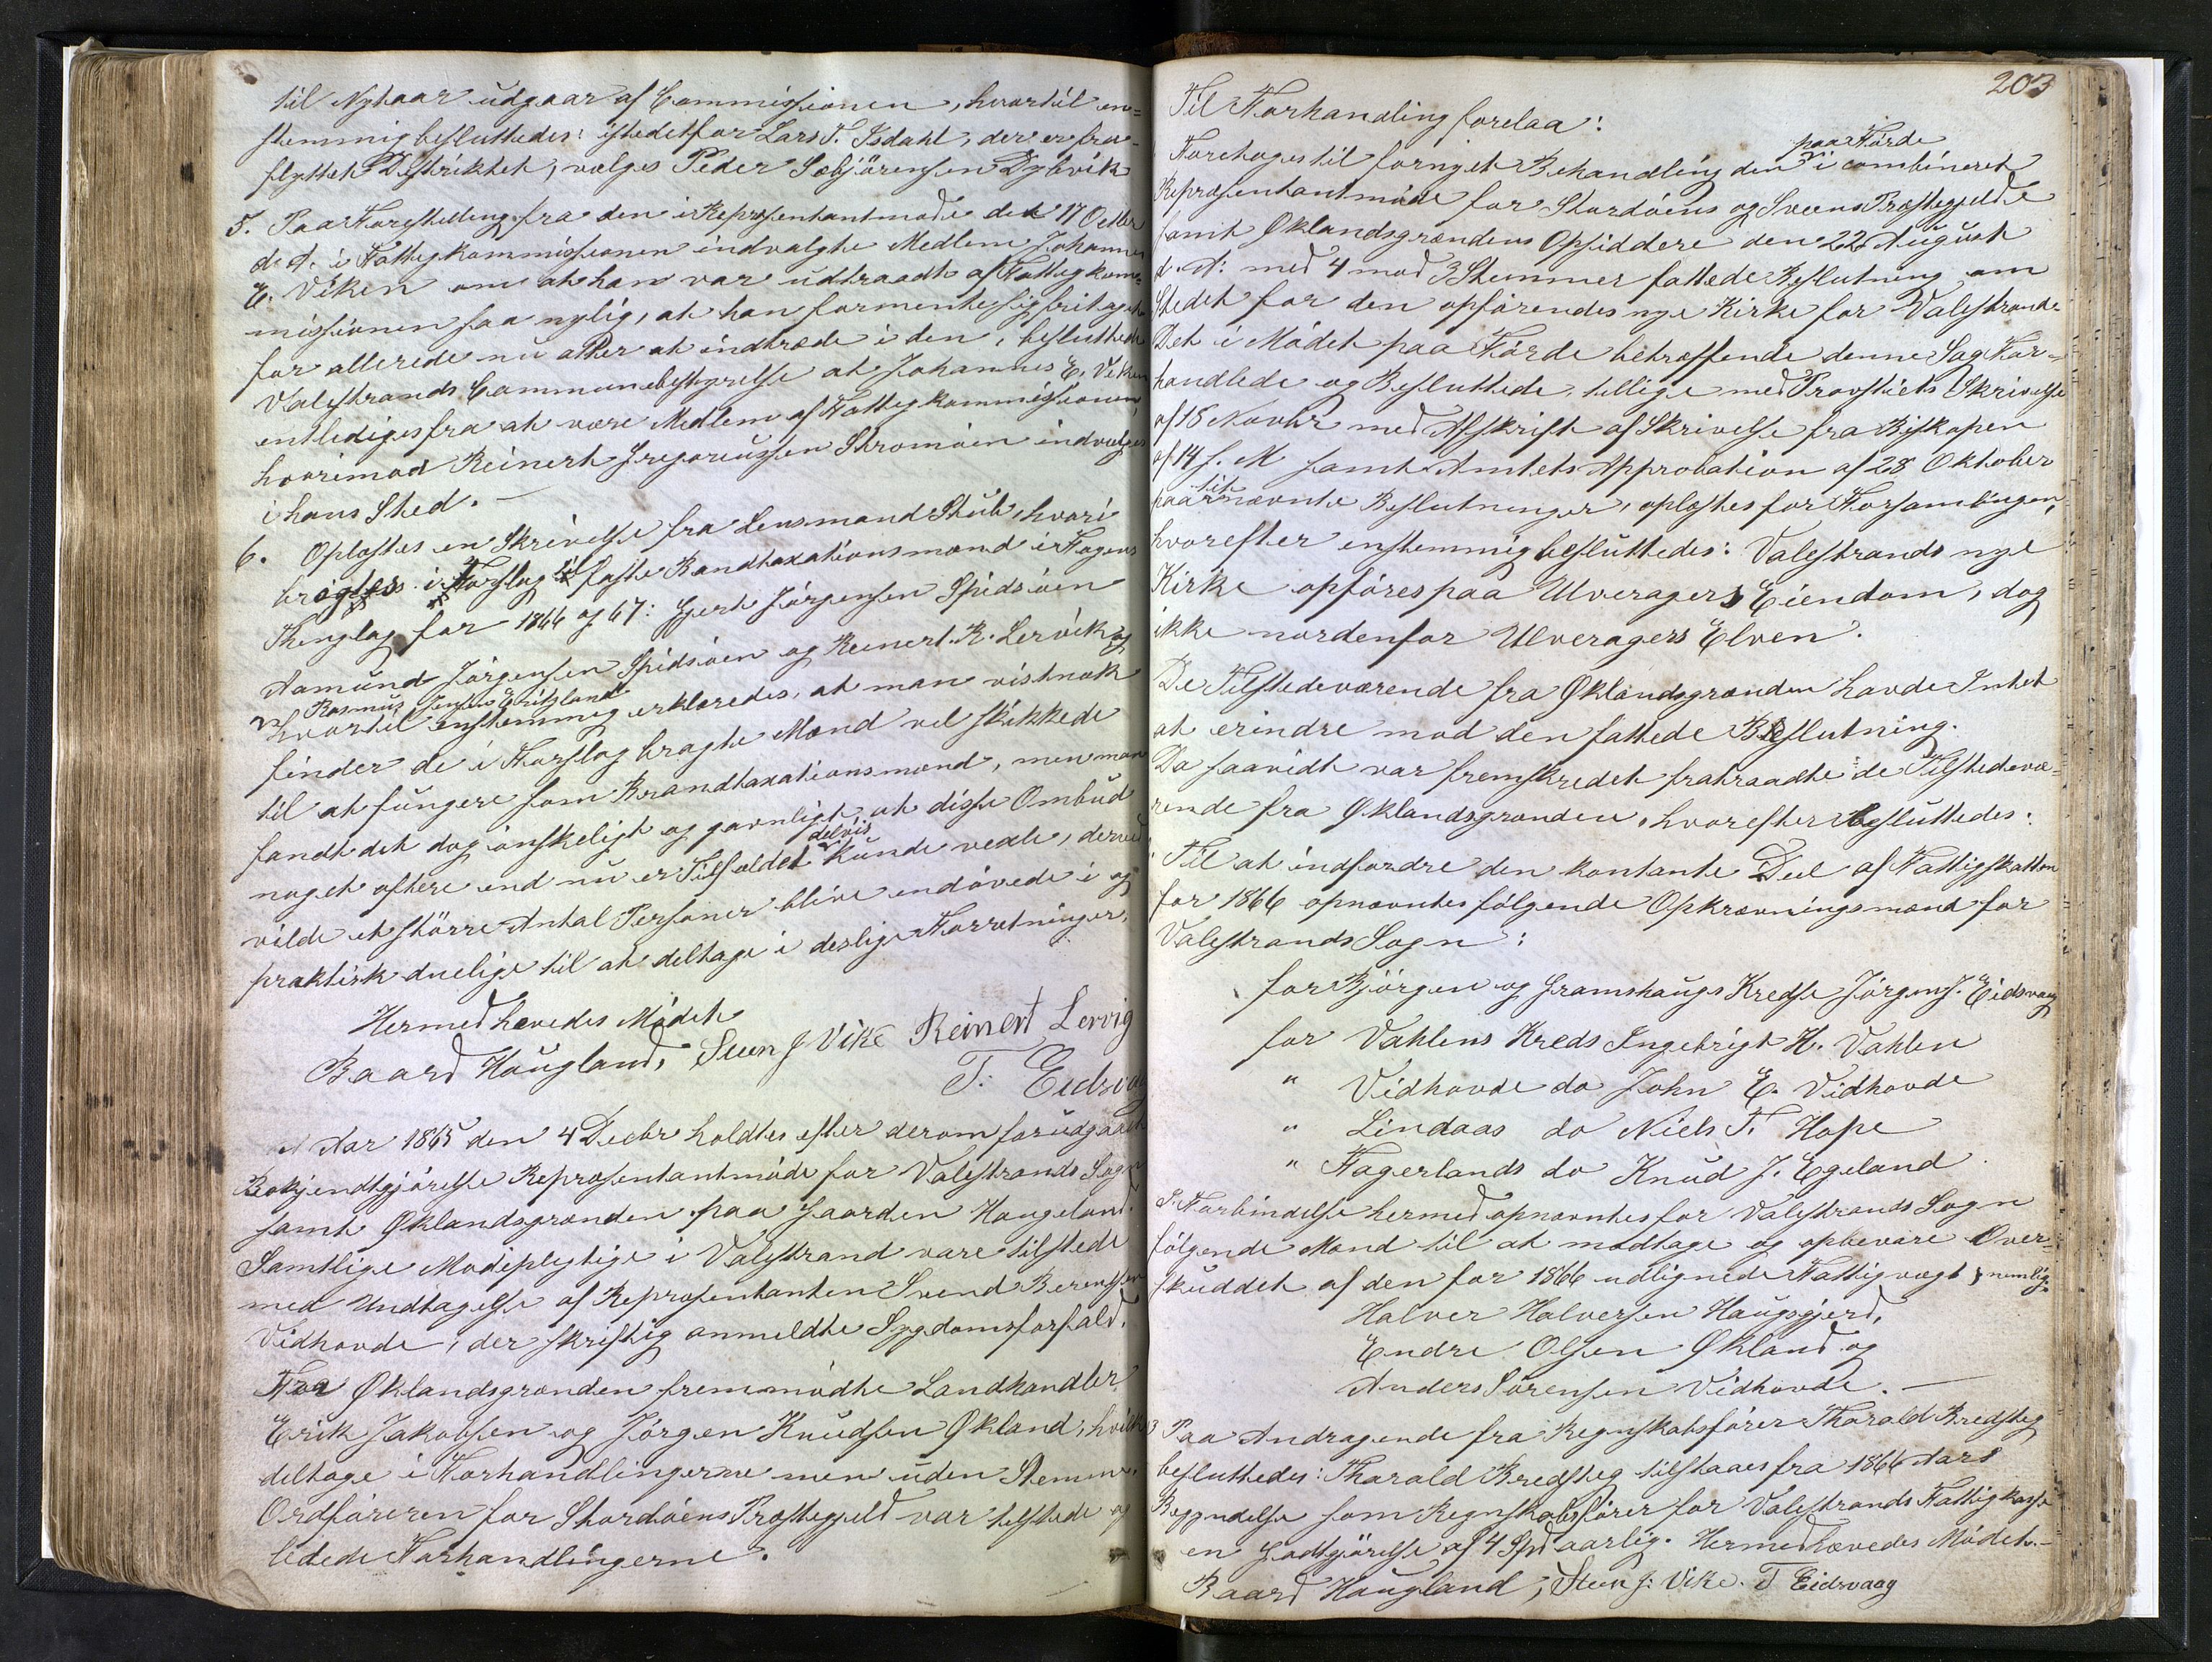 til Nytaar udgaar af Commissionen, hvortil en=
stemmig besluttedes: istedetfor Lars T. Isdahl, der er fra-
flyttet Distriktet, vælges Peder Sæbjörensen Dybvik
5. Paa Forestilling fra den i Repræsentantmøde den 17 Octbr
d. A. i Fattigkommissionen indvalgte Medlem Johannes
E. Viken om at han var udtraadt af Fattigkom=
missionen saa nylig, at han formente sig fritaget
for allerede nu atter at indtræde i den, besluttede
Valestrands Communebestyrelse at Johannes E. Viken
entlediges fra at være Medlem af Fattigkommissionen,
hvorimod Reinert Gregoriussen Stromöen indvælges
i hans Sted. —
6. Oplæstes en Skrivelse fra Lensmand Stub, hvori
bragtes i Forslag til faste Brandtaxationsmænd i Fogens
Thinglag for 1866 og 67: Gjert Jörgensen Spidsöen
Aamund Jörgensen Spidsöen og Reinert R. Lervik og
Rasmus Jensen Eritzland
hvortil enstemmig erklæredes, at man vistnok
finder de i Forslag bragte Mænd vel skikkede
til at fungere som Brandtaxationsmænd, men man
fandt det dog önskeligt og gavnligt at disse Ombud
delvis
noget oftere end nu er Tilfældet kunde vexle, derved
vilde et större Antal Personer blive indövede i og
praktisk duelige til at deltage i deslige Forretninger.
Hermed hævedes Mödet
Baard Haugland, Steen J Vike Reinert Lervig
T. Eidsvaag
Aar 1865 den 4 Decbr holdtes efter derom forudgaaet
Bekjendtgjörelse Repræsentantmöde for Valestrands Sogn
samt Øklandsgrænden paa Gaarden Haugeland.
Samtlige Mødepligtige i Valestrand vare tilstede
med Undtagelse af Repræsentanten Svend Berentsen
Vidhovde, der skriftlig anmeldte Sygdomsforfald.
Fra Øklandsgrænden fremmödte Landhandler
Erik Jakobsen og Jörgen Knudsen Økland, hvilke
deltoge i Forhandlingerne men uden Stemme.
Ordföreren for Stordöens Præstegjeld var tilstede og
ledede Forhandlingerne.
203
Til Forhandling forelaa:
paa Förde
Foretoges til fornyet Behandling den i combineret
Repræsentantmöde for Stordöens og Sveens Præstegjelde
samt Øklandsgrændens Opsiddere den 22 August
d. A: med 4 mod 3 Stemmer fattede Beslutning om
Stedet for den opförendes nye Kirke for Valestrand.
Det i Mödet paa Förde betræffende denne Sag For=
handlede og Besluttede, tillige med Provstiets Skrivelse
af 18 Novbr med Afskrift af Skrivelse fra Biskopen
af 14 s. M samt Amtets Approbation af 28 Oktober
paa nævnte Beslutninger, oplæstes for Forsamlingen,
hvorefter enstemmig besluttedes: Valestrands nye
Kirke opföres paa Ulveragers Eiendom, dog
ikke nordenfor Ulveragers Elven.
De Tilstedeværende fra Øklandsgrænden havde Intet
at erindre mod den fattede Beslutning.
Da saavidt var fremskredet fratraadte de Tilstedevæ=
rende fra Øklandsgrænden, hvorefter besluttedes:
Til at indfordre den kontante Deel af Fattigskatten
for 1866 opnævntes fölgende Opkrævningsmænd for
Valestrands Sogn:
for Björgen og Gramshaugs Kredse Jörgen J. Eidsvaag
for Vahlens Kreds Ingebrigt H. Vahlen
" Vidhovde do John E. Vidhovde
" Lindaas do Niels T. Hope
" Fagerlands do Knud J. Egeland
I Forbindelse hermed opnævntes for Valestrands Sogn
fölgende Mænd til at modtage og opbevare Over=
skuddet af den for 1866 udlignede Fattigvægt, nemlig:
Halver Halversen Haugsgjerd,
Endre Olsen Økland og
Anders Sörensen Vidhovde. —
3 Paa Andragende fra Regnskabsförer Tharald Bredsteg
besluttedes: Tharald Bredsteg tilstaaes fra 1866 Aars
Begyndelse som Regnskabsförer for Valestrands Fattigkasse
en Godtgjörelse af 4 Spd aarlig. Hermed hævedes Mödet.
Baard Haugland, Steen J: Vike. T Eidsvaag